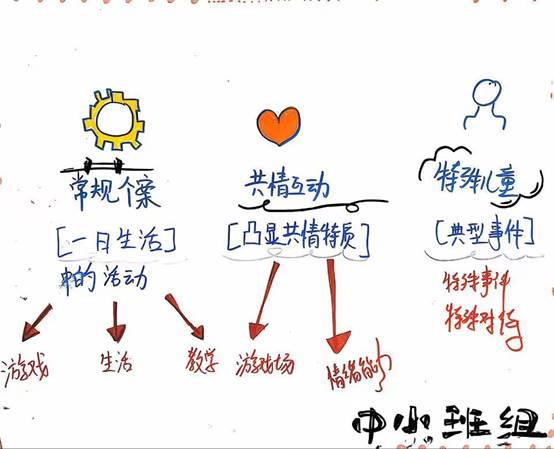 常规个案
[一日生活]
中的活动
游戏
生活
教学
共情互动
[凸显共情特质]
游戏场
特殊儿童
[典型事件]
特殊事件
特殊对待
中小班组